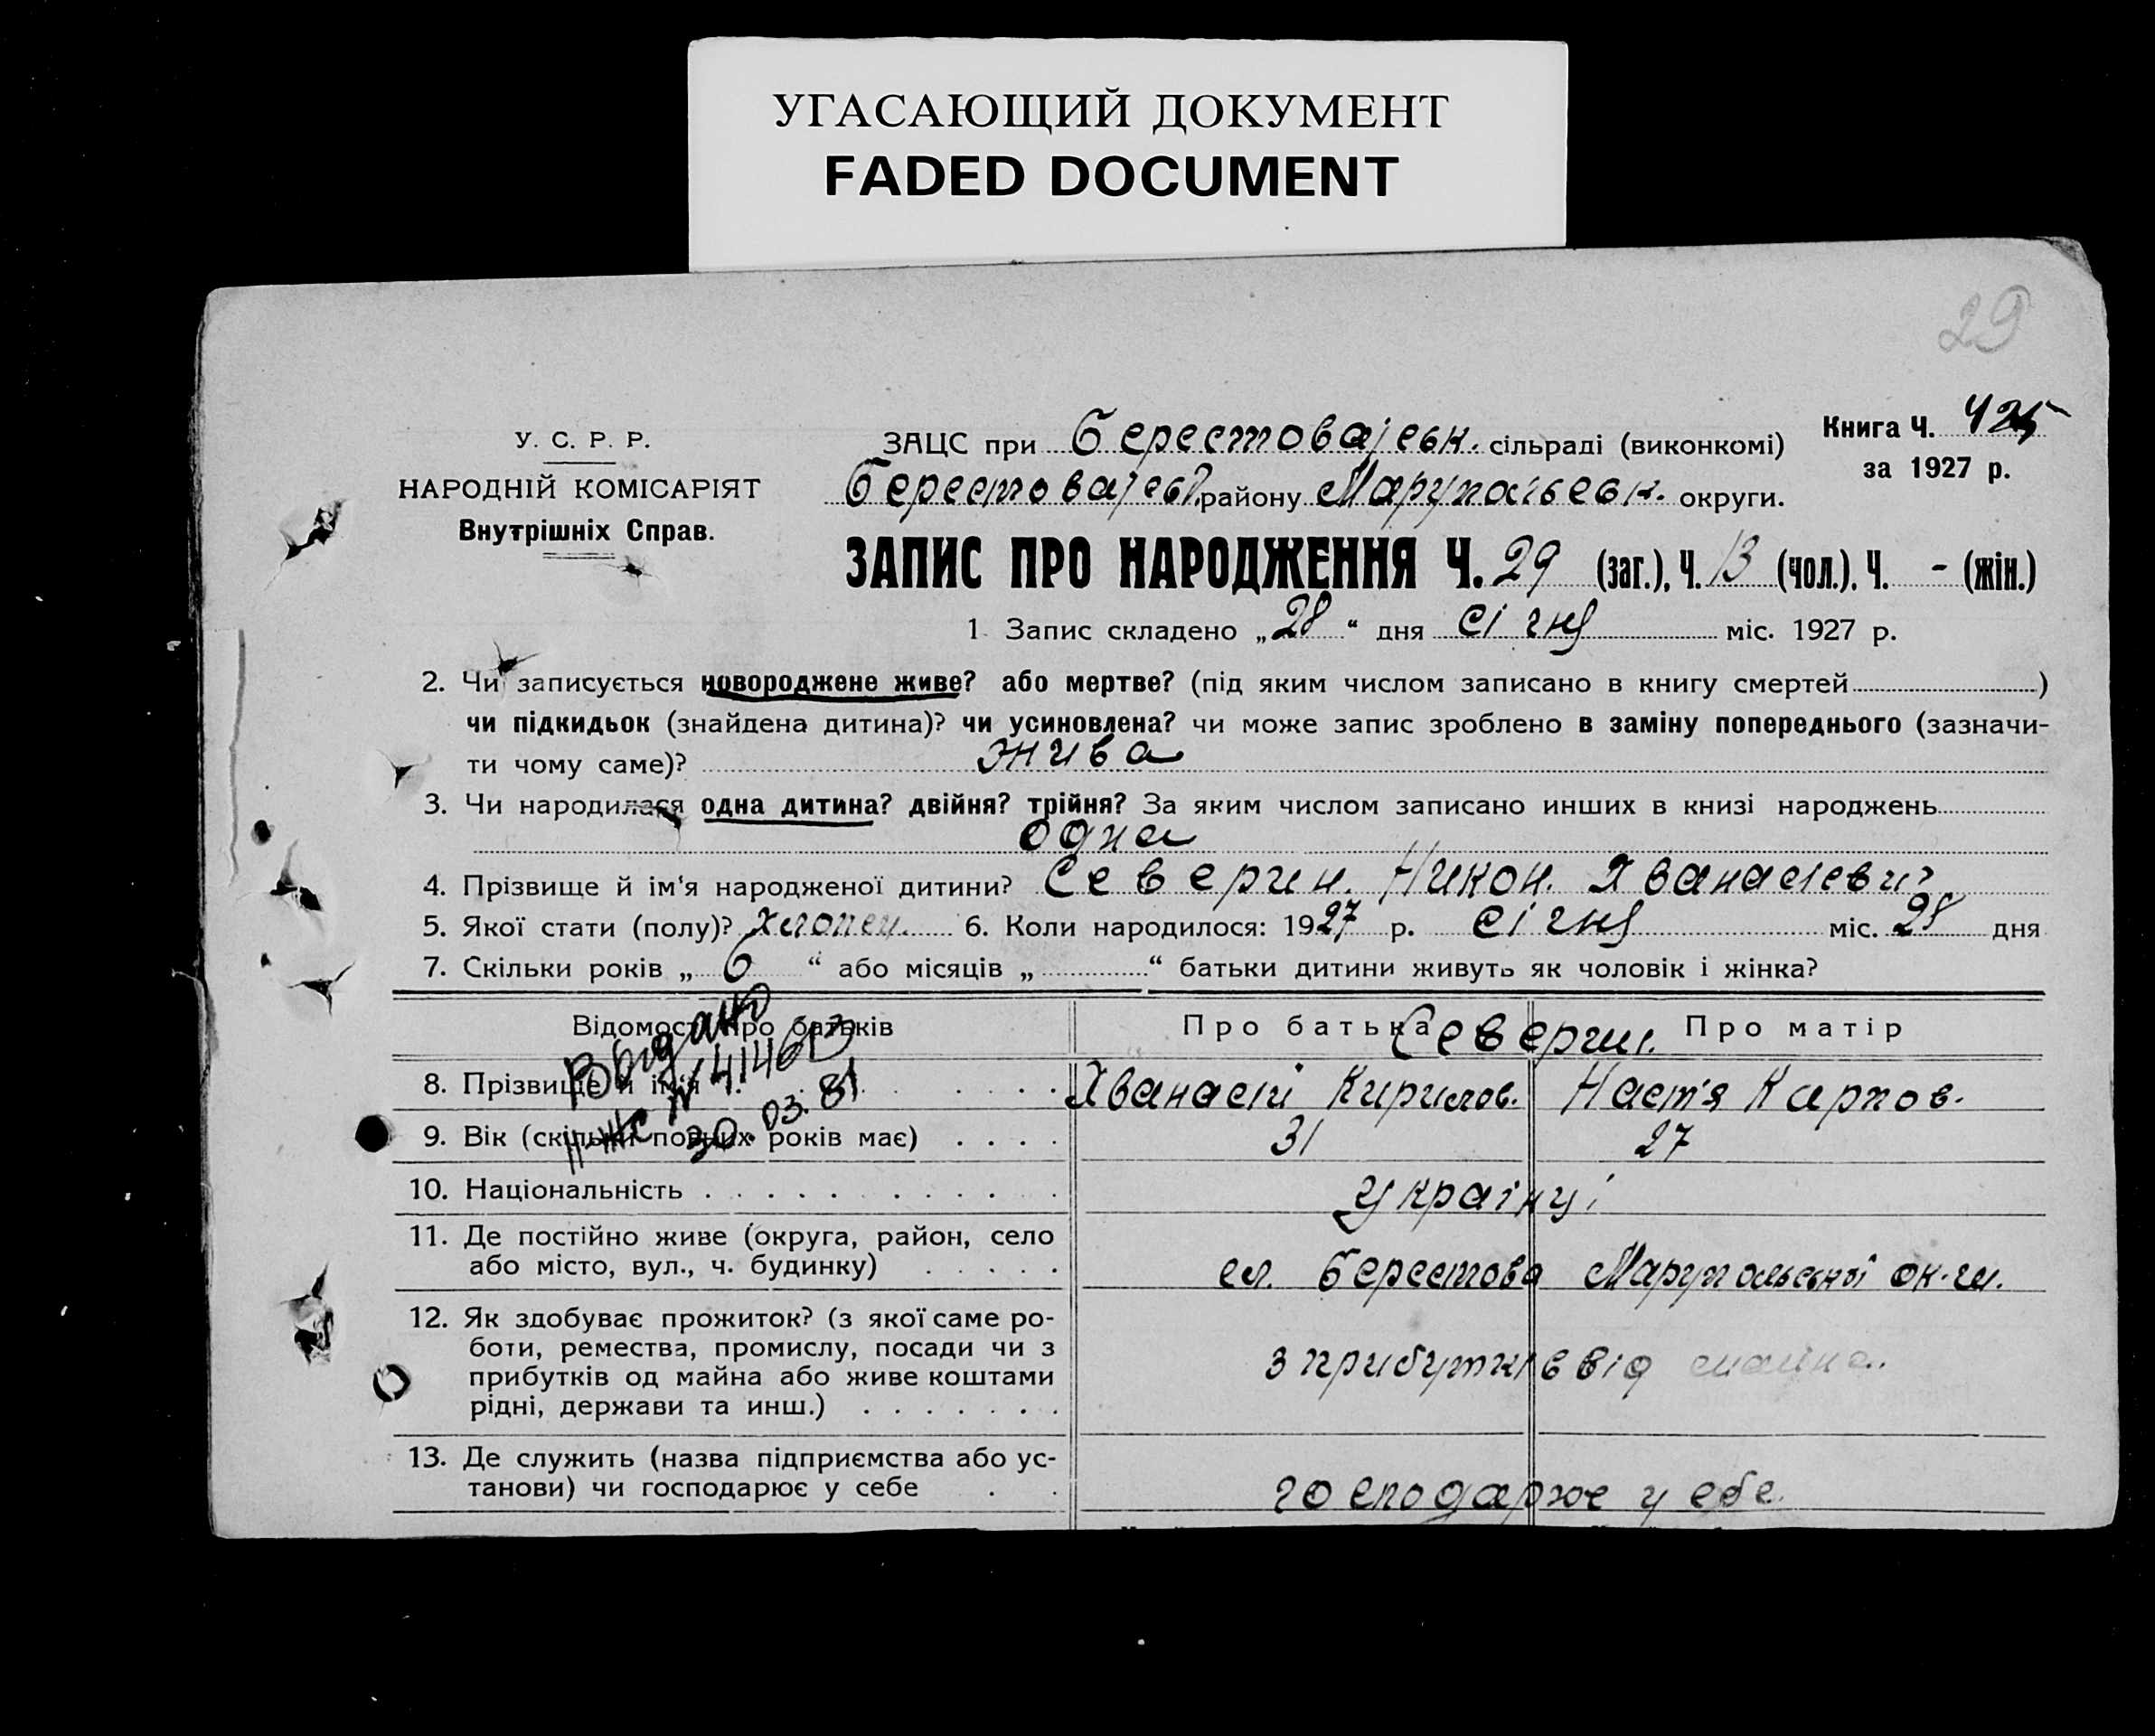 УГАСАЮЩИЙ ДОКУМЕНТ
FADED DOCUMENT
29
У. С. Р. Р.
НАРОДНІЙ КОМІСАРІЯТ
Внутрішніх Справ.
ЗАЦС при Берестоваєськ. сільраді (виконкомі)
Берестоваєськ. району Марупольськ. округи.
Книга Ч. 425
за 1927 р.
ЗАПИС ПРО НАРОДЖЕННЯ Ч. 29 (заг.), Ч. 13 (чол.), Ч. - (жін.)
1. Запис складено „28“ дня січня міс. 1927 р.
2. Чи записується новороджене живе? або мертве? (під яким числом записано в книгу смертей)
чи підкидьок (знайдена дитина)? чи усиновлена? чи може запис зроблено в заміну попереднього (зазначи-
ти чому саме)? жива
3. Чи народилася одна дитина? двійня? трійня? За яким числом записано инших в книзі народжень
одна
4. Прізвище й ім'я народженої дитини? Северин. Никон. Хванасієвич
5. Якої стати (полу)? Хлопец. 6. Коли народилося: 1927 р. січня міс. 28 дня
7. Скільки років „ 6 “ або місяців „ “ батьки дитини живуть як чоловік і жінка?
Відомості про батьків
Про батька
Северин.
Про матір
Выдано
II-ЖС № 414613
30.03.81
8. Прізвище й ім'я
Хванасій Кирилов.
Наст'я Карпов.
9. Вік (скільки повних років має)
31
27
10. Національність
Українці
11. Де постійно живе (округа, район, село
або місто, вул., ч. будинку)
сл. Берестова Марупольської ок-ги.
12. Як здобуває прожиток? (з якої саме ро-
боти, ремества, промислу, посади чи з
прибутків од майна або живе коштами
рідні, держави та инш.)
з прибутків від майна.
13. Де служить (назва підприємства або ус-
танови) чи господарює у себе
господарює у себе.